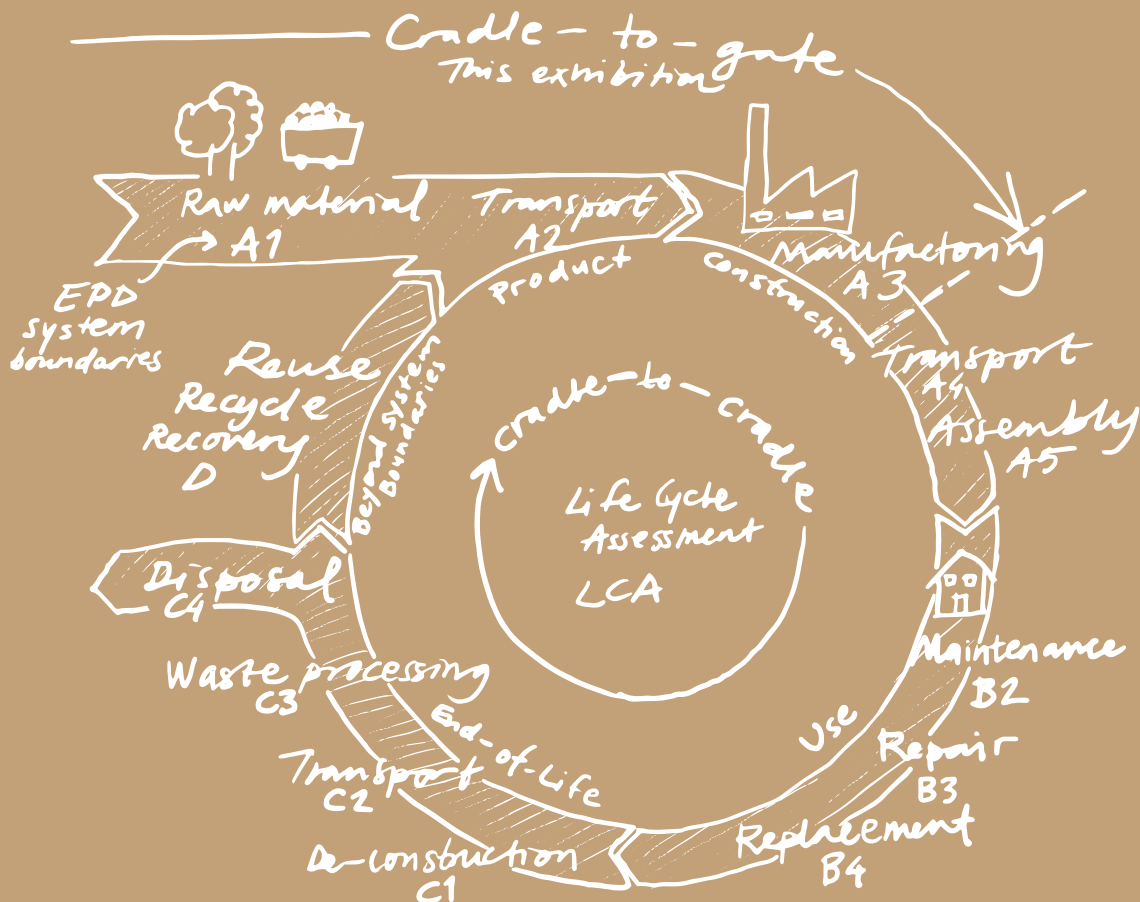 Cradle-to-gate
This exhibition
Raw material
A1
Transport
A2
Manufactoring
A3
EPD
system
boundaries
Product
Construction
Transport
A4
Assembly
A5
Reuse
Recycle
Recovery
D
Beyond System
Boundaries
Cradle-to-cradle
Life Cycle
Assessment
LCA
Disposal
C4
Maintenance
B2
Waste processing
C3
Use
Repair
B3
End-of-Life
Transport
C2
Replacement
B4
De-construction
C1